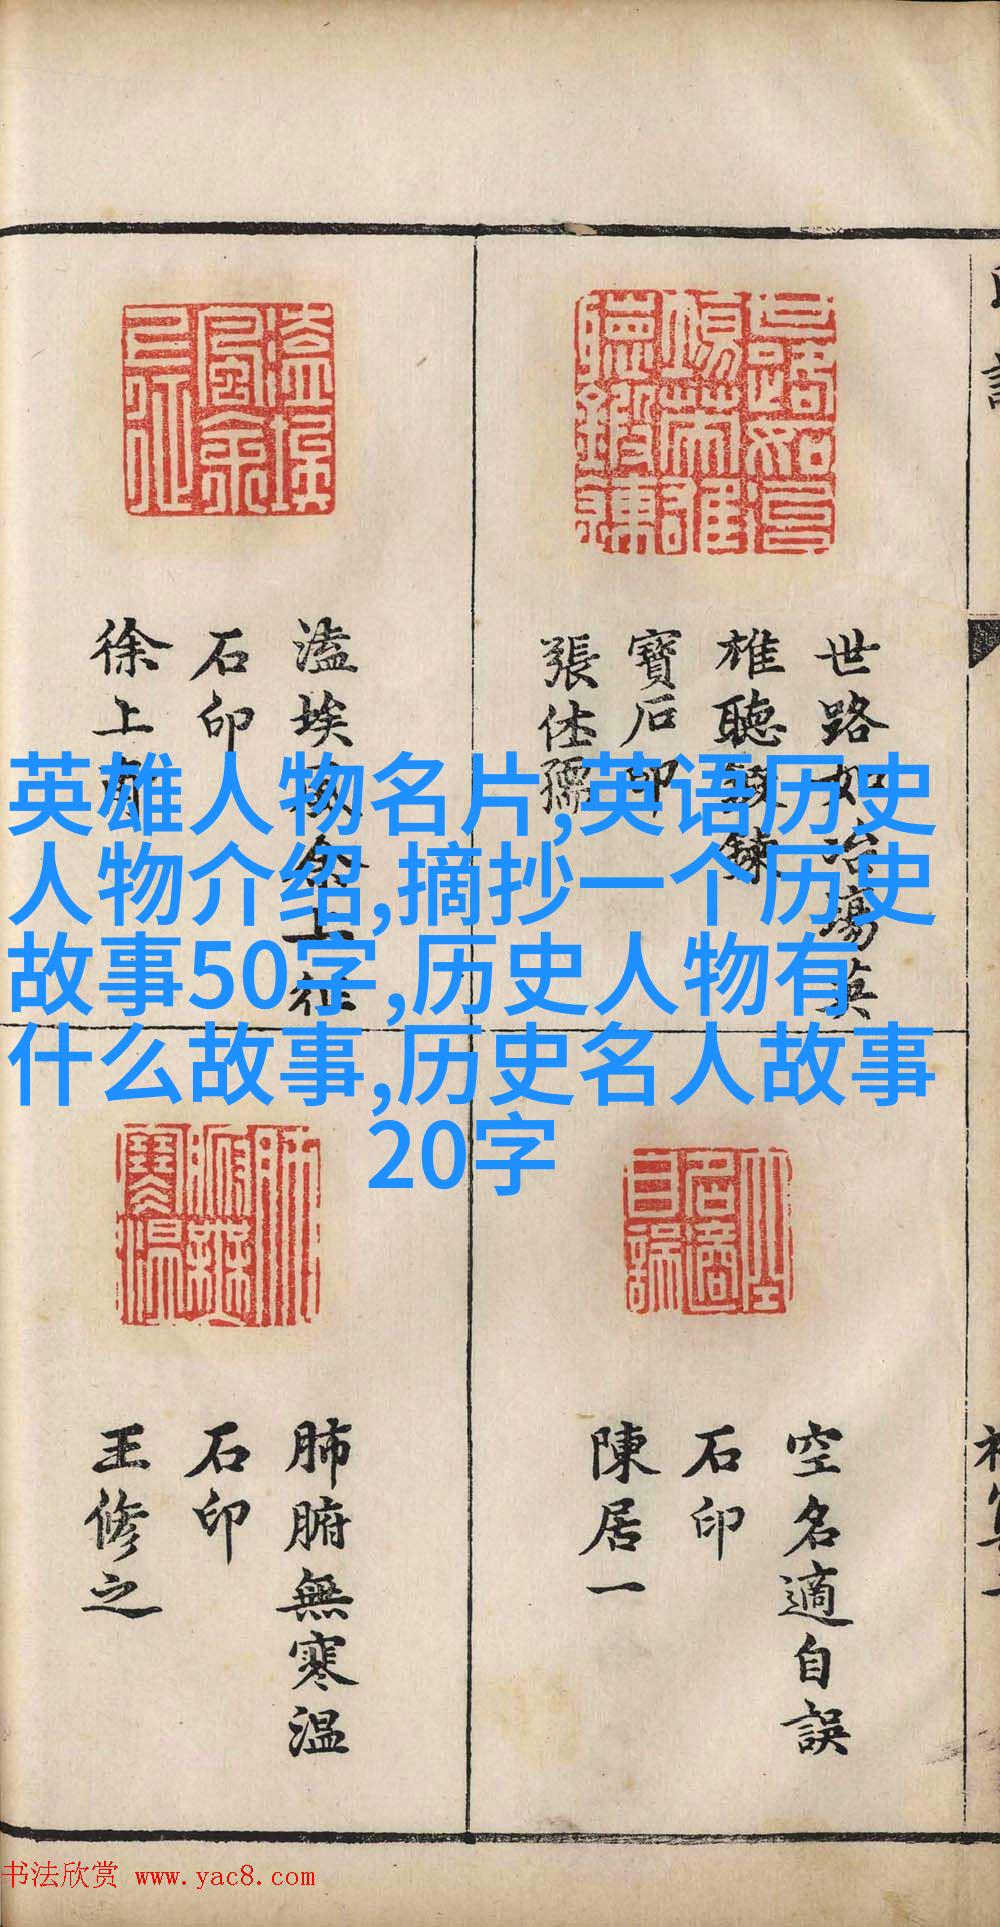 世路如冶場英
雄聽鍛鍊
寶石印
張仕孺
溘埃風余上征
石印
徐上
英雄人物名片,英语历史
人物介绍,摘抄一个历史
故事50字,历史人物有
什么故事,历史名人故事
20字
空名適自誤
石印
陳居一
肺腑無寒温
石印
王修之
书法欣赏 www.yac8.com